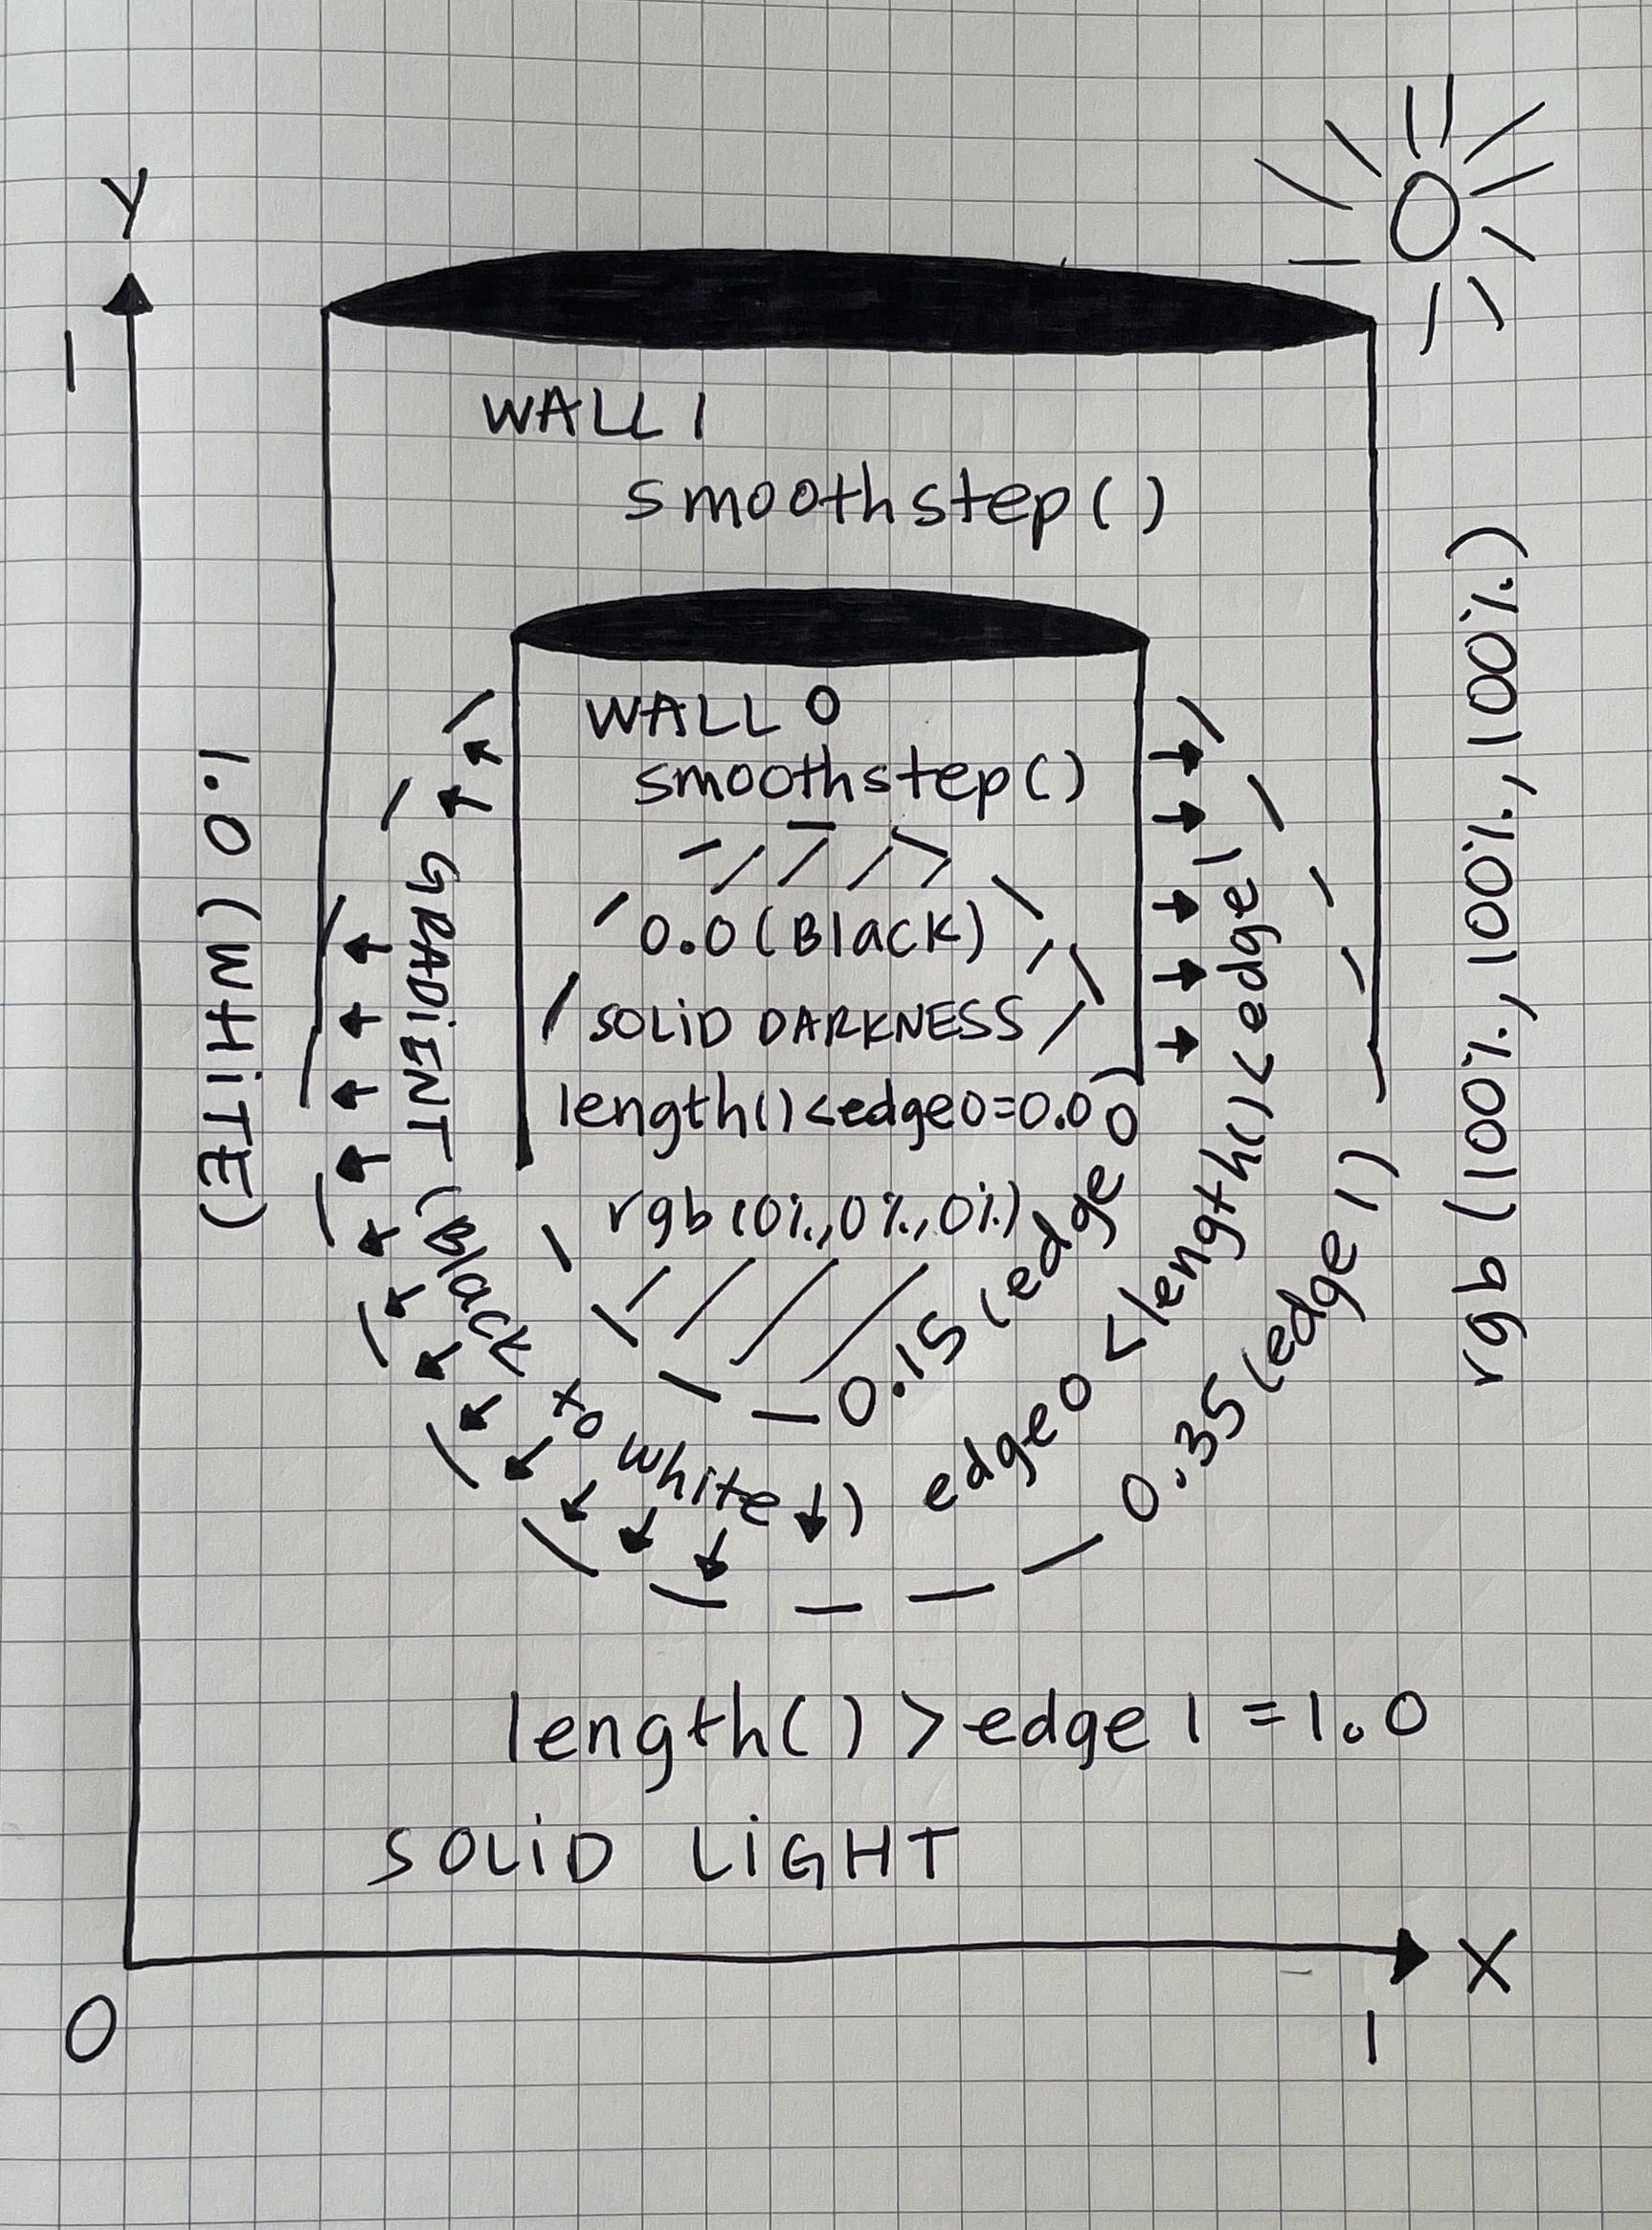 Y
1
WALL 1
smoothstep()
WALL 0
smoothstep()
0.0 (Black)
SOLiD DARKNESS
length()<edge0=0.0
rgb(0%,0%,0%)
0.15 (edge 0)
edge0<length()<edge1
0.35 (edge 1)
GRADiENT (Black to white)
1.0 (WHiTE)
rgb (100%, 100%, 100%)
length() > edge 1 = 1.0
SOLiD LiGHT
X
0
1